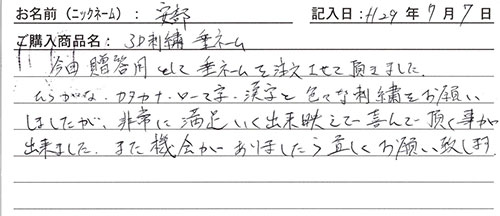 お名前（ニックネーム）： 安部 記入日：H29年7月7日
ご購入商品名： 3D刺繍 垂ネーム
今回 贈答用として垂ネームを注文させて頂きました。
ひらがな・カタカナ・ローマ字・漢字と色々な刺繍をお願い
しましたが、非常に満足いく出来映えで喜んで頂く事が
出来ました。また機会がありましたら宜しくお願い致します